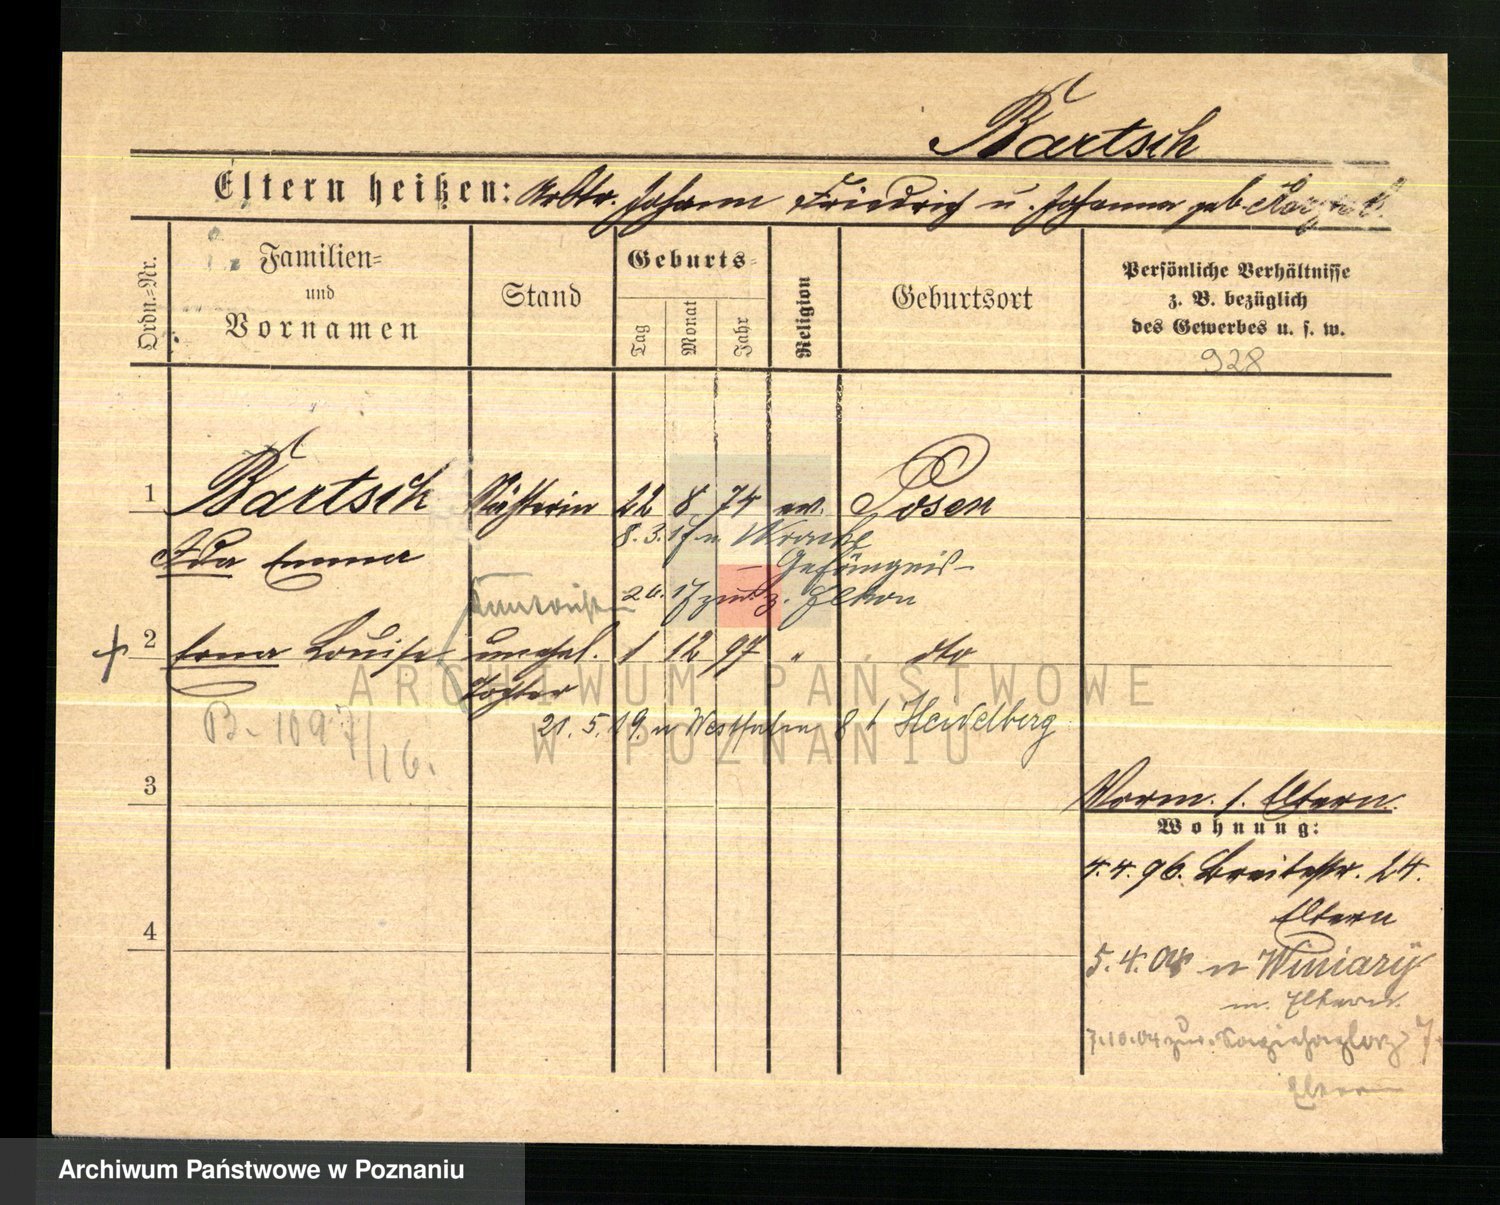 Bartsch
Eltern heißen: Arbtr. Johann Friedrich u. Johanna geb.
Ordn.=Nr.
Familien=
und
Vornamen
Stand
Geburts=
Tag
Monat
Jahr
Religion
Geburtsort
Persönliche Verhältnisse
z. B. bezüglich
des Gewerbes u. s. w.
928
1 Bartsch Nähterin 22 8 74 ev. Posen
Ida Emma
8. 3. 17 n. Wronke
– Gefängnis –
26. 17 zur. z. Eltern
2 Erna Louise unehel. 1 12 97 " dto
Tochter
21. 5. 19. n Westfalen Heidelberg
B. 1097/16.
3
Worm. Eltern
Wohnung:
4. 4. 96. Breitestr. 24.
Eltern
5. 4. 04 n Winiary
m. Eltern
7. 10. 04 zur. 7
Eltern
4
ARCHIWUM PAŃSTWOWE
W POZNANIU
Archiwum Państwowe w Poznaniu